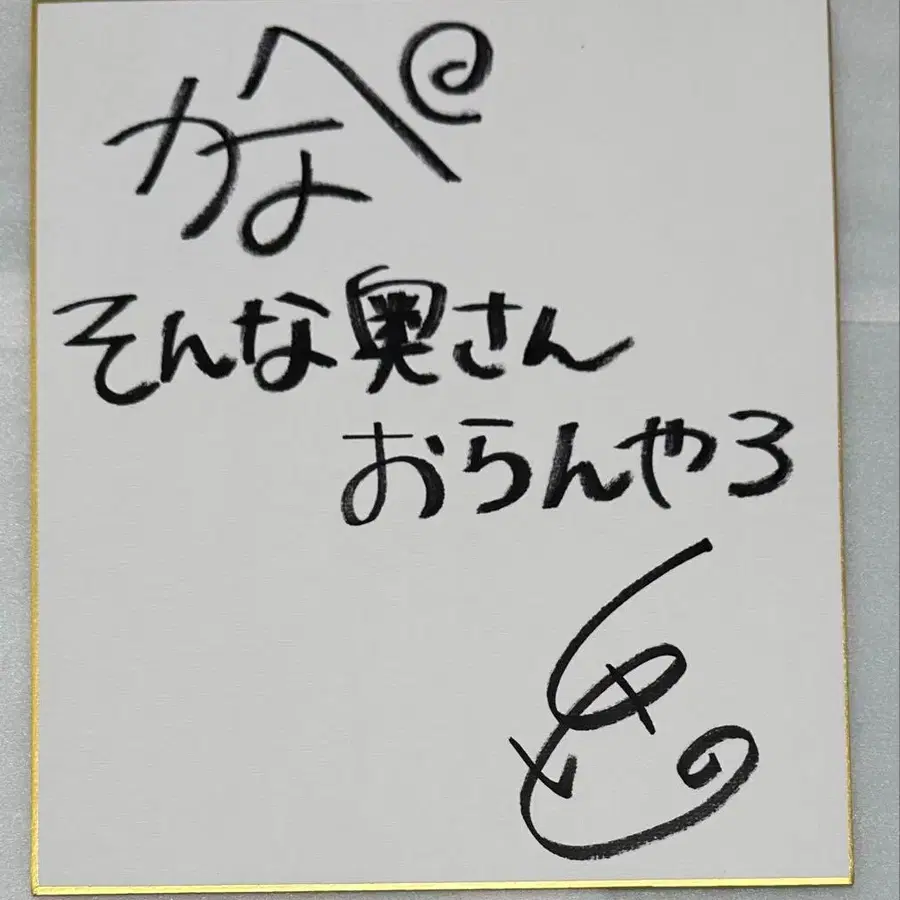 かなぺ
そんな奥さん
おらんやろ